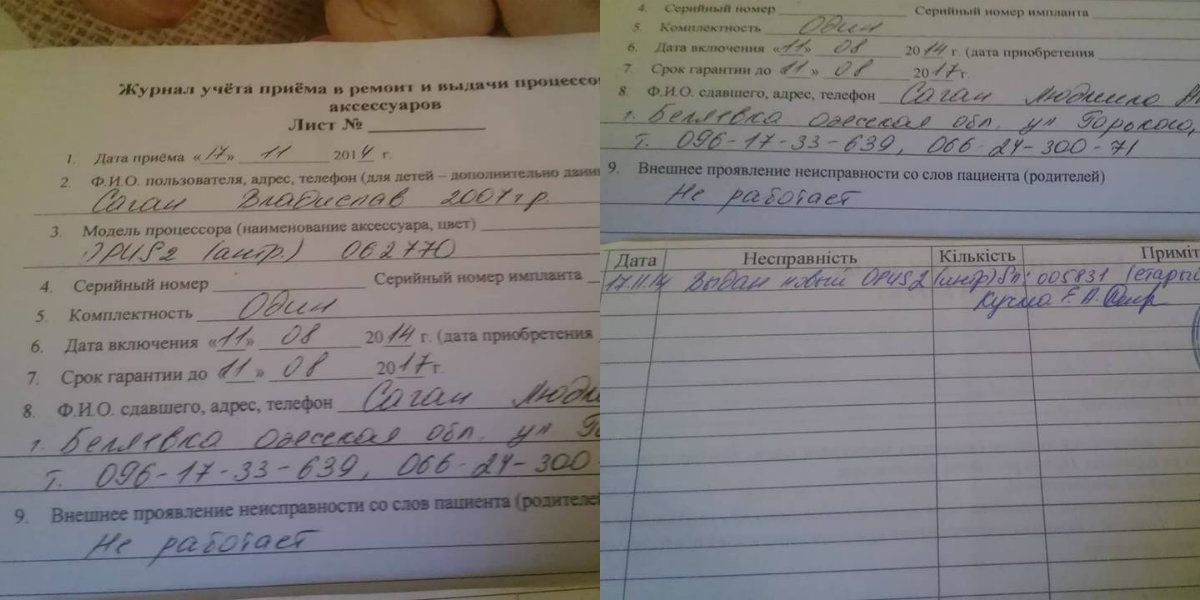 Журнал учёта приёма в ремонт и выдачи процессо
аксессуаров
Лист № ___
1. Дата приёма «17» 11 2014 г.
2. Ф.И.О. пользователя, адрес, телефон (для детей – дополнительно
Саган Владислав 2007 г.р.
3. Модель процессора (наименование аксессуара, цвет)
OPUS2 (антр.) 062770
4. Серийный номер ___ Серийный номер импланта
5. Комплектность Один
6. Дата включения «11» 08 2014 г. (дата приобретения
7. Срок гарантии до «11» 08 2017 г.
8. Ф.И.О. сдавшего, адрес, телефон Саган
г. Беляевка Одесская обл. ул
т. 096-17-33-639, 066-24-300
9. Внешнее проявление неисправности со слов пациента (родителей
Не работает
4. Серийный номер ___ Серийный номер импланта
5. Комплектность Один
6. Дата включения «11» 08 2014 г. (дата приобретения
7. Срок гарантии до «11» 08 2017 г.
8. Ф.И.О. сдавшего, адрес, телефон Саган Людмила
г. Беляевка Одесская обл. ул Горького,
т. 096-17-33-639, 066-24-300-71
9. Внешнее проявление неисправности со слов пациента (родителей)
Не работает
Дата Несправність Кількість Приміт
17.11.14 Выдан новый OPUS2 (антр) Sn: 005831 (старый
Кучма Е.А.